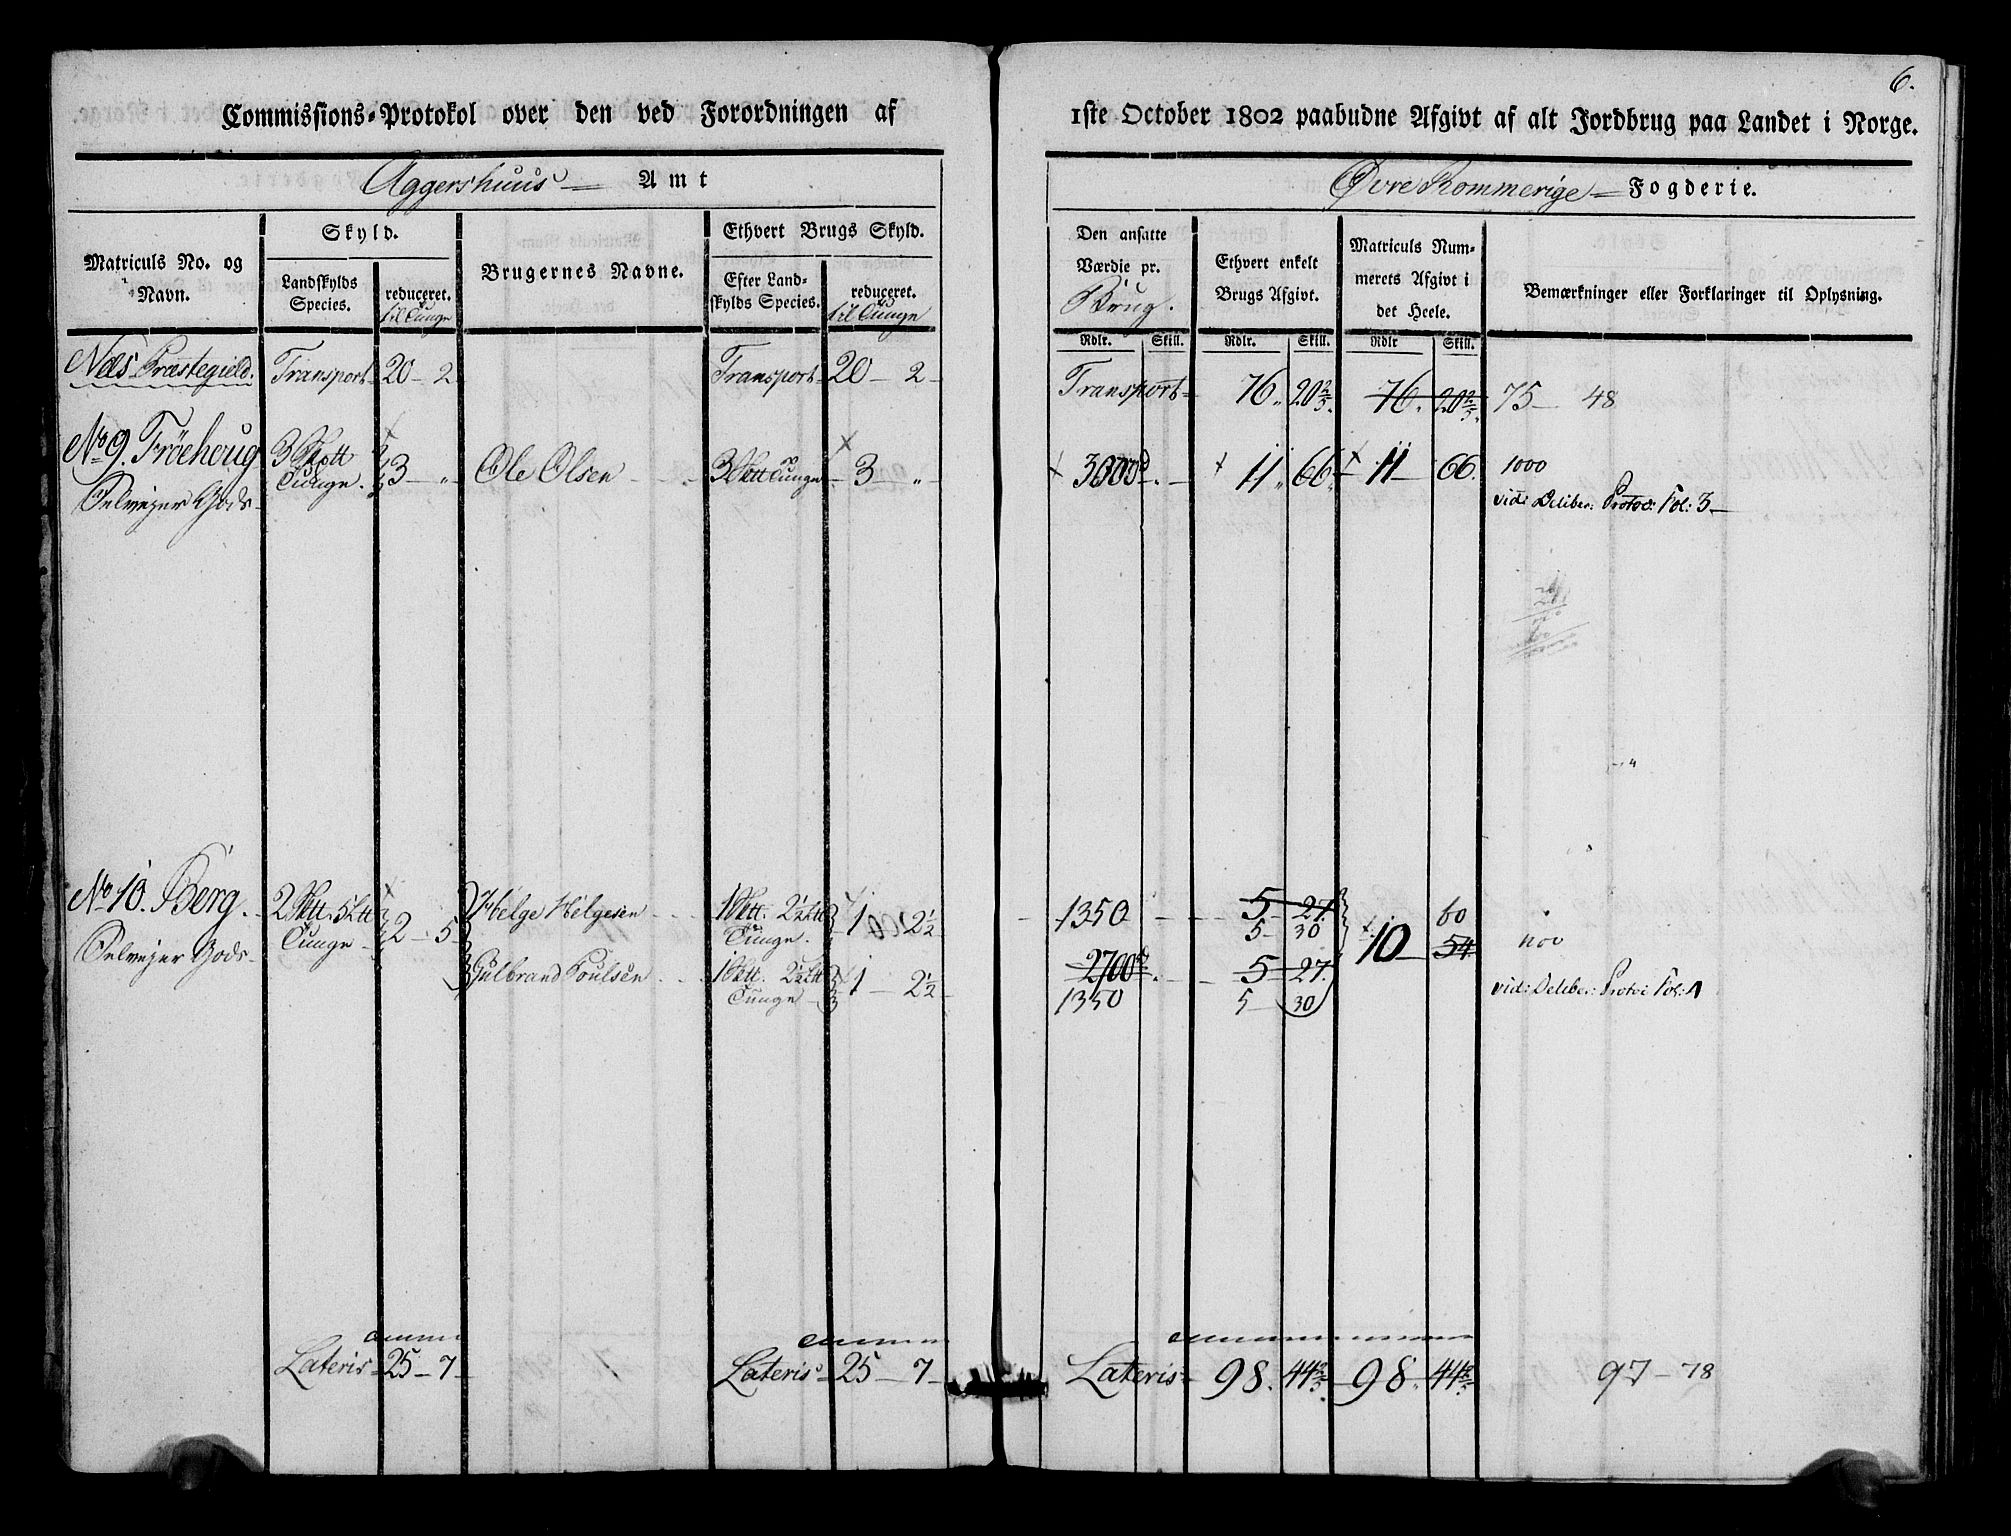 6.
Commissions-Protokol over den ved Forordningen af 1ste October 1802 paabudne Afgivt af alt Jordbrug paa Landet i Norge.
Aggershuus Amt
Øvre Rommerige Fogderie.
Matriculs No. og Navn.
Skyld.
Landskylds Species.
reduceret. til Tunge
Brugernes Navne.
Ethvert Brugs Skyld.
Efter Landskylds Species.
reduceret. til Tunge
Den ansatte Værdie pr. Brug.
Rdlr. Skill.
Ethvert enkelt Brugs Afgivt.
Rdlr. Skill.
Matriculs Nummerets Afgivt i det Heele.
Rdlr Skill.
Bemærkninger eller Forklaringer til Oplysning.
Næs Præstegield. Transport 20 - 2 Transport 20 - 2 - Transport 76. 20 2/5. 76. 20 2/5. 75 - 48
No 9. Fröehoug 3 Tunge. 3 - " Ole Olsen 3 Tunge 3 - " 3000 11 66 11 66. 1000
Selvejer Gods vid: Deliber: Protoc: Fol: 3
No 10. Berg. 2 5 Tunge 2 - 5 Helge Helgesen 1 2½ Tunge. 1 2½ 1350 5 - 27. 60
5 - 30 10 54.
Selvejer Gods Gulbrand Poulsen 1 2½ Tunge 1 - 2½ 2700 5 - 27. vid: Deliber: Protoc Fol:
1350 5 30
Lateris 25 - 7 Lateris 25 - 7 Lateris 98. 44 2/5. 98. 44 2/5. 97 - 78